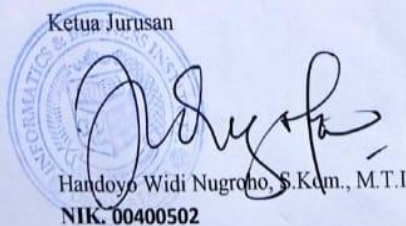 Ketua Jurusan
INFORMATICS &
Handoyo Widi Nugroho, S.Kom., M.T.I
NIK. 00400502